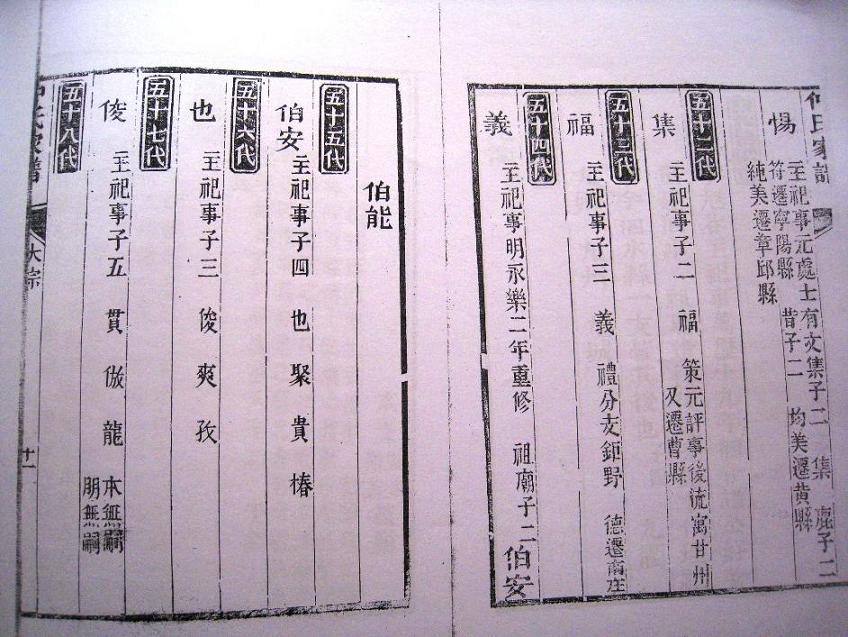 氏家譜
惕 主祀事元處士有文集子二 集 鹿子二
符遷寧陽縣 昔子二 均美遷黃縣
純美遷章邱縣
五十二代
集 主祀事子二 福 策元評事後流寓甘州
又遷曹縣
五十三代
福 主祀事子三 義 禮分支鉅野 德遷南庄
五十四代
義 主祀事明永樂二年重修 祖廟子二 伯安
伯能
五十五代
伯安 主祀事子四 也 聚 貴 椿
五十六代
也 主祀事子三 俊 爽 孜
五十七代
俊 主祀事子五 貫 倣 龍 本無嗣
朋無嗣
五十八代
大宗
十一